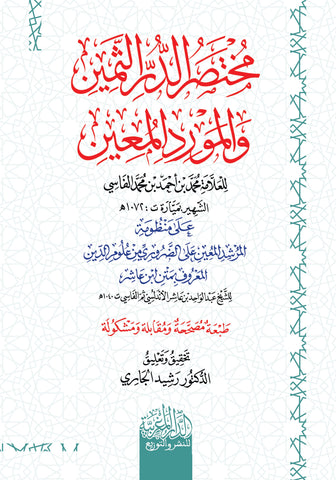 مُخْتَصَرُ الدُّرِّ الثَّمِينِ
وَالمَوْرِدِ المُعِينِ
لِلعَلَّامَةِ مُحَمَّد بْنِ أَحْمَد بْنِ مُحَمَّد الفَاسِي
الشَّهِيرِ بِمَيَّارَة ت: ١٠٧٢هـ
عَلَى مَنْظُومَةِ
المُرْشِدِ المُعِينِ عَلَى الضَّرُورِيِّ مِنْ عُلُومِ الدِّينِ
المَعْرُوفِ بِمَتْنِ ابْنِ عَاشِر
لِلشَّيْخِ عَبْدِ الوَاحِدِ بْنِ عَاشِر الأَنْدَلُسِيِّ ثُمَّ الفَاسِي ت: ١٠٤٠هـ
طَبْعَةٌ مُصَحَّحَةٌ وَمُقَابَلَةٌ وَمَشْكُولَةٌ
تَحْقِيقُ وَتَعْلِيقُ
الدُّكْتُورِ رَشِيد الجَارِي
الدار المغربية
للنشر والتوزيع